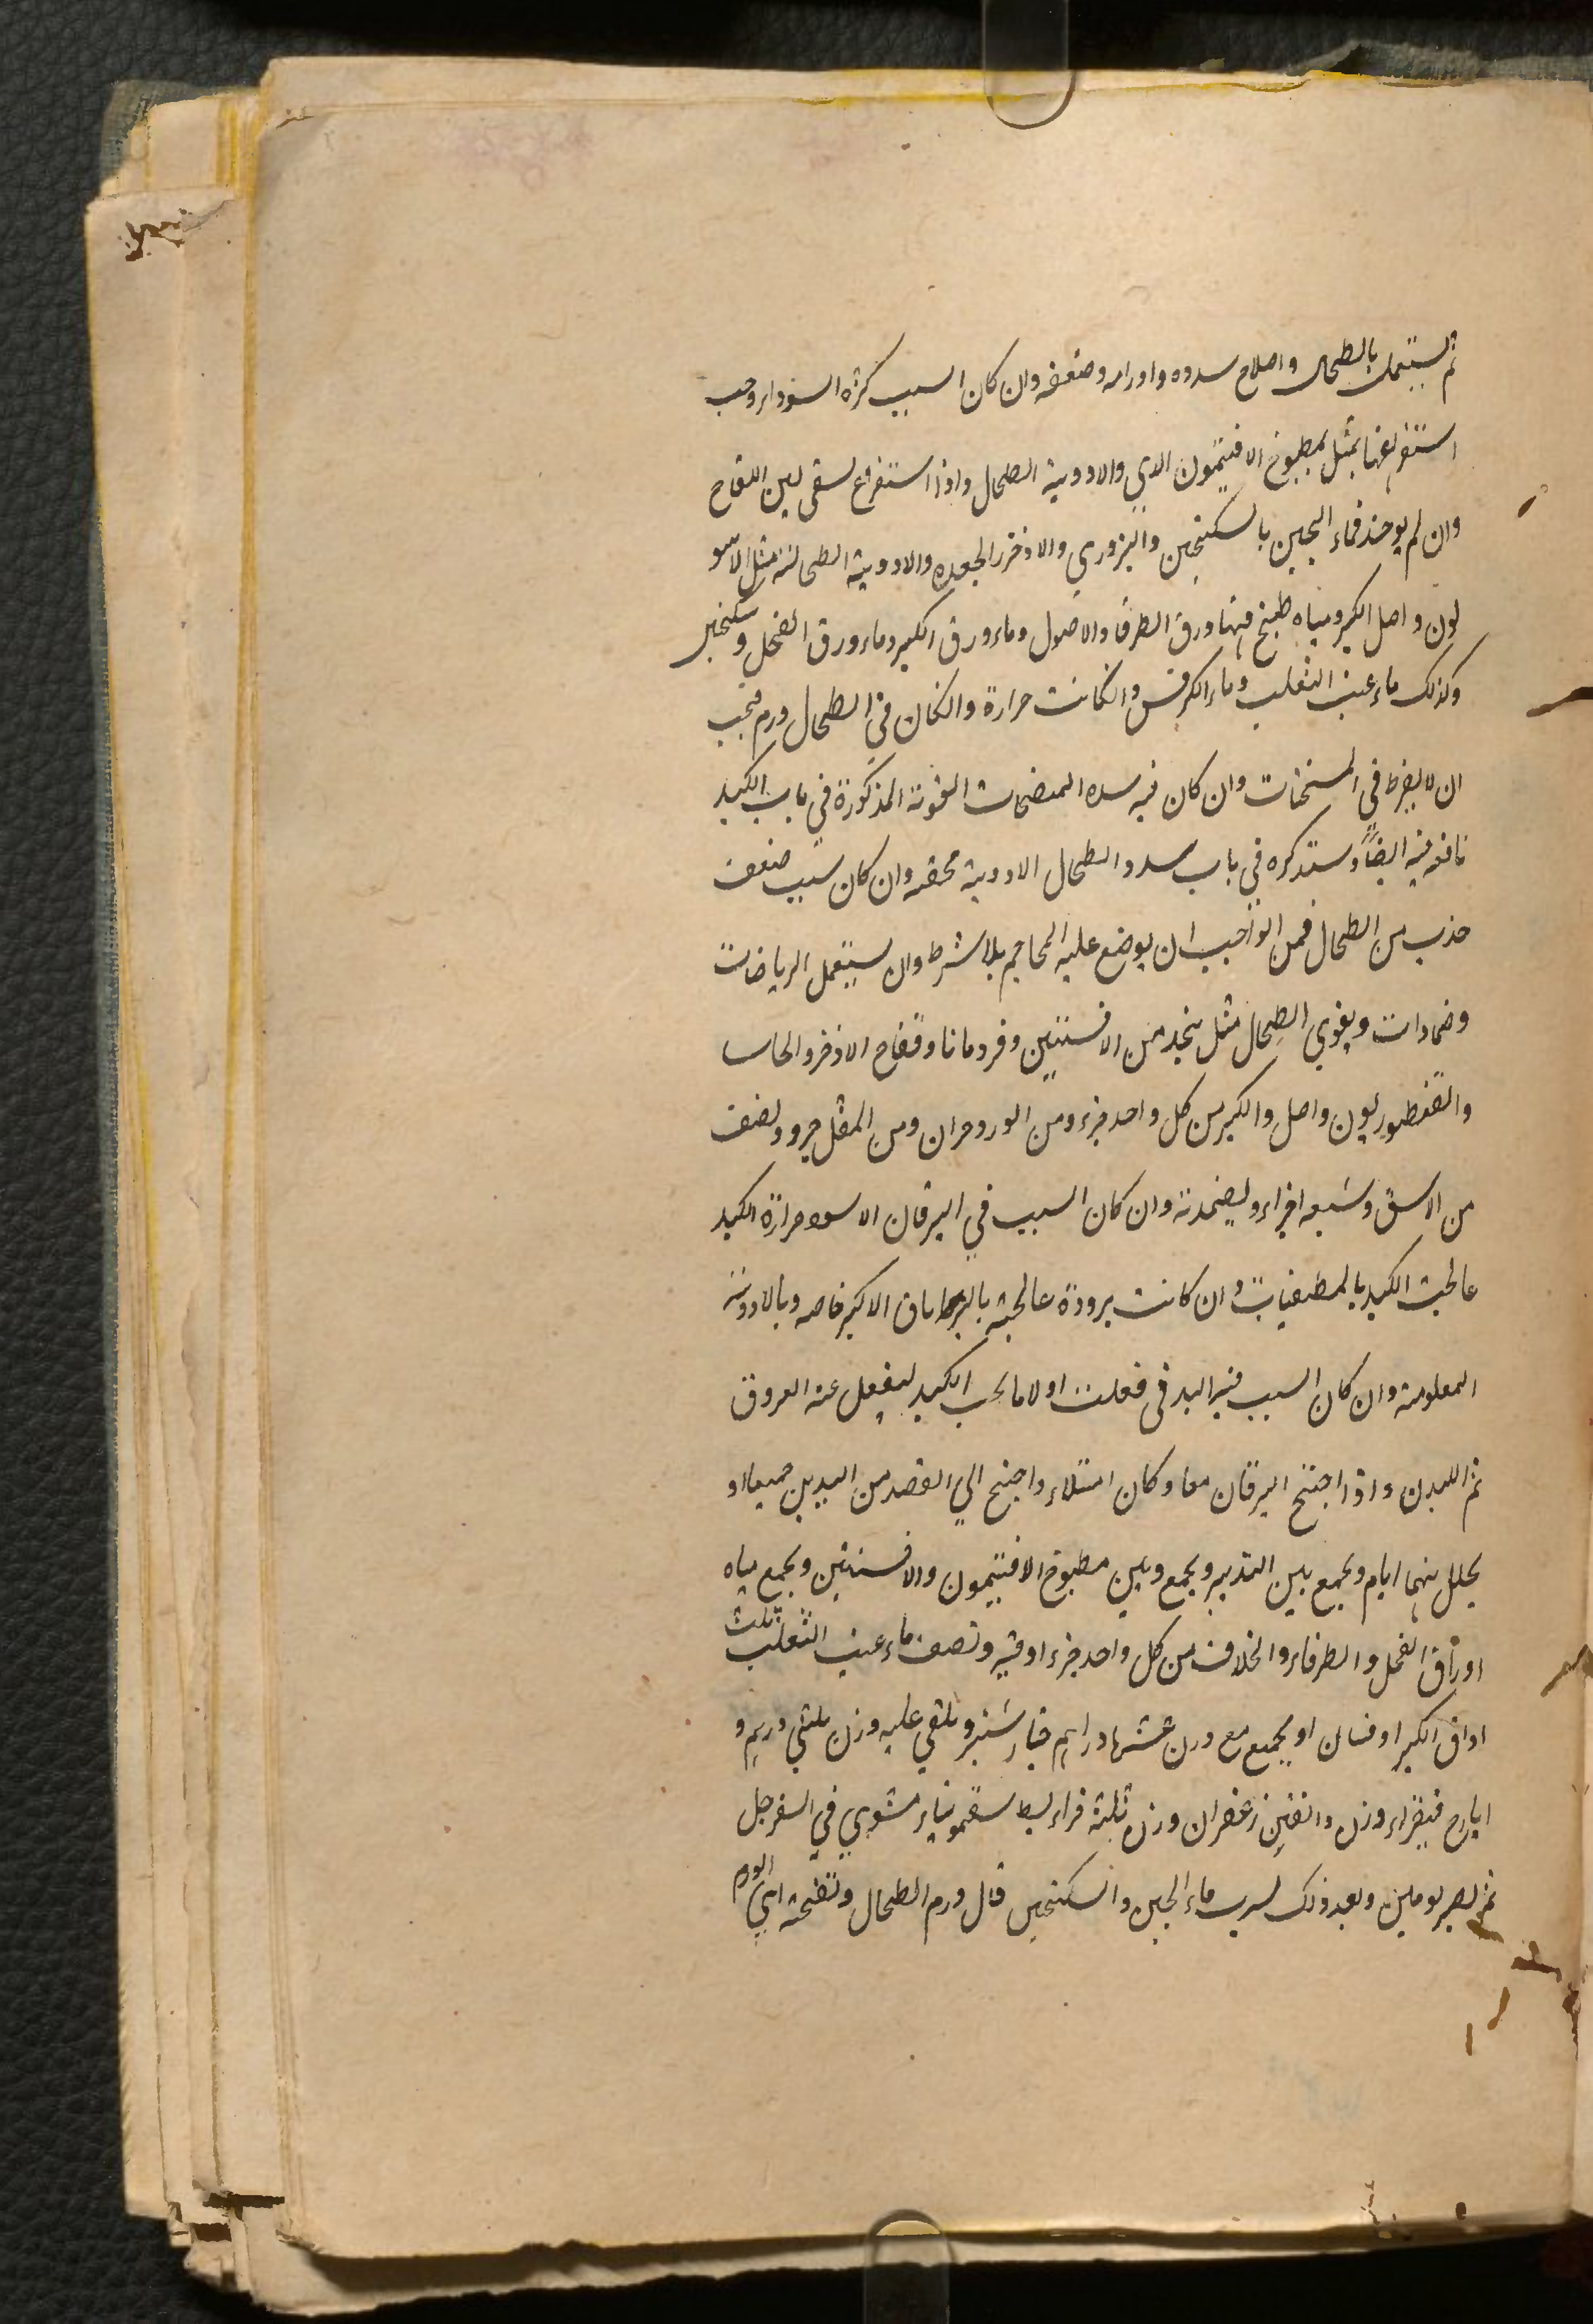 ثم يستعمل بالطحال واصلاح سدده واورامه وضعفه وان كان السبب كثرة السوداء وجب
استفراغها بمثل بمطبوخ الافتيمون الذي والادوية الطحال واذا استفراغ سقى لبن اللقاح
وان لم يوجد فماء الجبن بالسكنجبين والبزوري والاذخر الجعده والادوية الطحالية مثل الاسو
لون واصل الكبر ومياه طبخ فيها ورق الطرفا والاصول وماء ورق الكبر وماء ورق الفجل وسكنجبين
وكذلك ماء عنب الثعلب وماء الكرفس وانكانت حرارة وانكان في الطحال ورم فيجب
ان لا يفرط في المسخنات وان كان فيه سده المضمدات القوية المذكورة في باب الكبد
نافعه فيه ايضاً وستذكره في باب سدد الطحال الادوية محققه وان كان سبب ضعف
جذب من الطحال فمن الواجب ان يوضع عليه المحاجم بلا شرط وان يستعمل الرياضات
وضمادات ويقوي الطحال مثل يتخذ من الافسنتين وقردمانا وفقاح الاذخر والحاسا
والقنطوريون واصل والكبر من كل واحد جزء ومن الورد جزان ومن المقل جزو ونصف
من الاسق وسبعه اجزاء ويضمد به وان كان السبب في اليرقان الاسود حرارة الكبد
عالجت الكبد بالمطفيات وان كانت برودة عالجته بالترياق الاكبر خاصه وبالادوية
المعلومة وان كان السبب فيه البدفى فعلت اولا ما يجب الكبد ليفعل عنه العروق
ثم البدن واذا اجتمع اليرقان معا وكان امتلاء واجتيح الي الفصد من اليدين جميعا او
يحلل بينهما ايام ويجمع بين التدبير ويجمع وبين مطبوخ الافتيمون والافسنتين ويجمع مياه
اوراق الفجل والطرفاء والخلاف من كل واحد جزء اوقيه ونصف ماء عنب الثعلب ثلث
اواق الكبر اوفسان او يجمع مع وزن عشرها دراهم خيار شنبر ويلقي عليه وزن ثلثي درهم و
ايارج فيقراء وزن دانقين زعفران وزن ثلثة قراريط سقمونياء مشوي في السفرجل
ثم يصبر يومين وبعد ذلك يسرب ماء الجبن والسكنجبين قال ورم الطحال ونفخته اي الورم